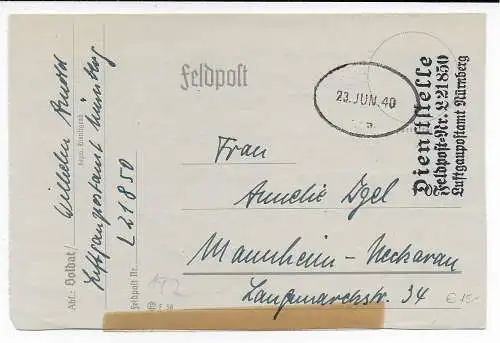 Feldpost
23. JUN. 40
Dienststelle
Feldpost-Nr. L 21850
Luftgaupostamt Nürnberg
Frau
Annelie Igel
Mannheim-Neckarau
Langemarckstr. 34
Abs.: Soldat/
Wilhelm
Luftgaupostamt Nürnberg
L 21850
Feldpost Nr.
€ 15.-